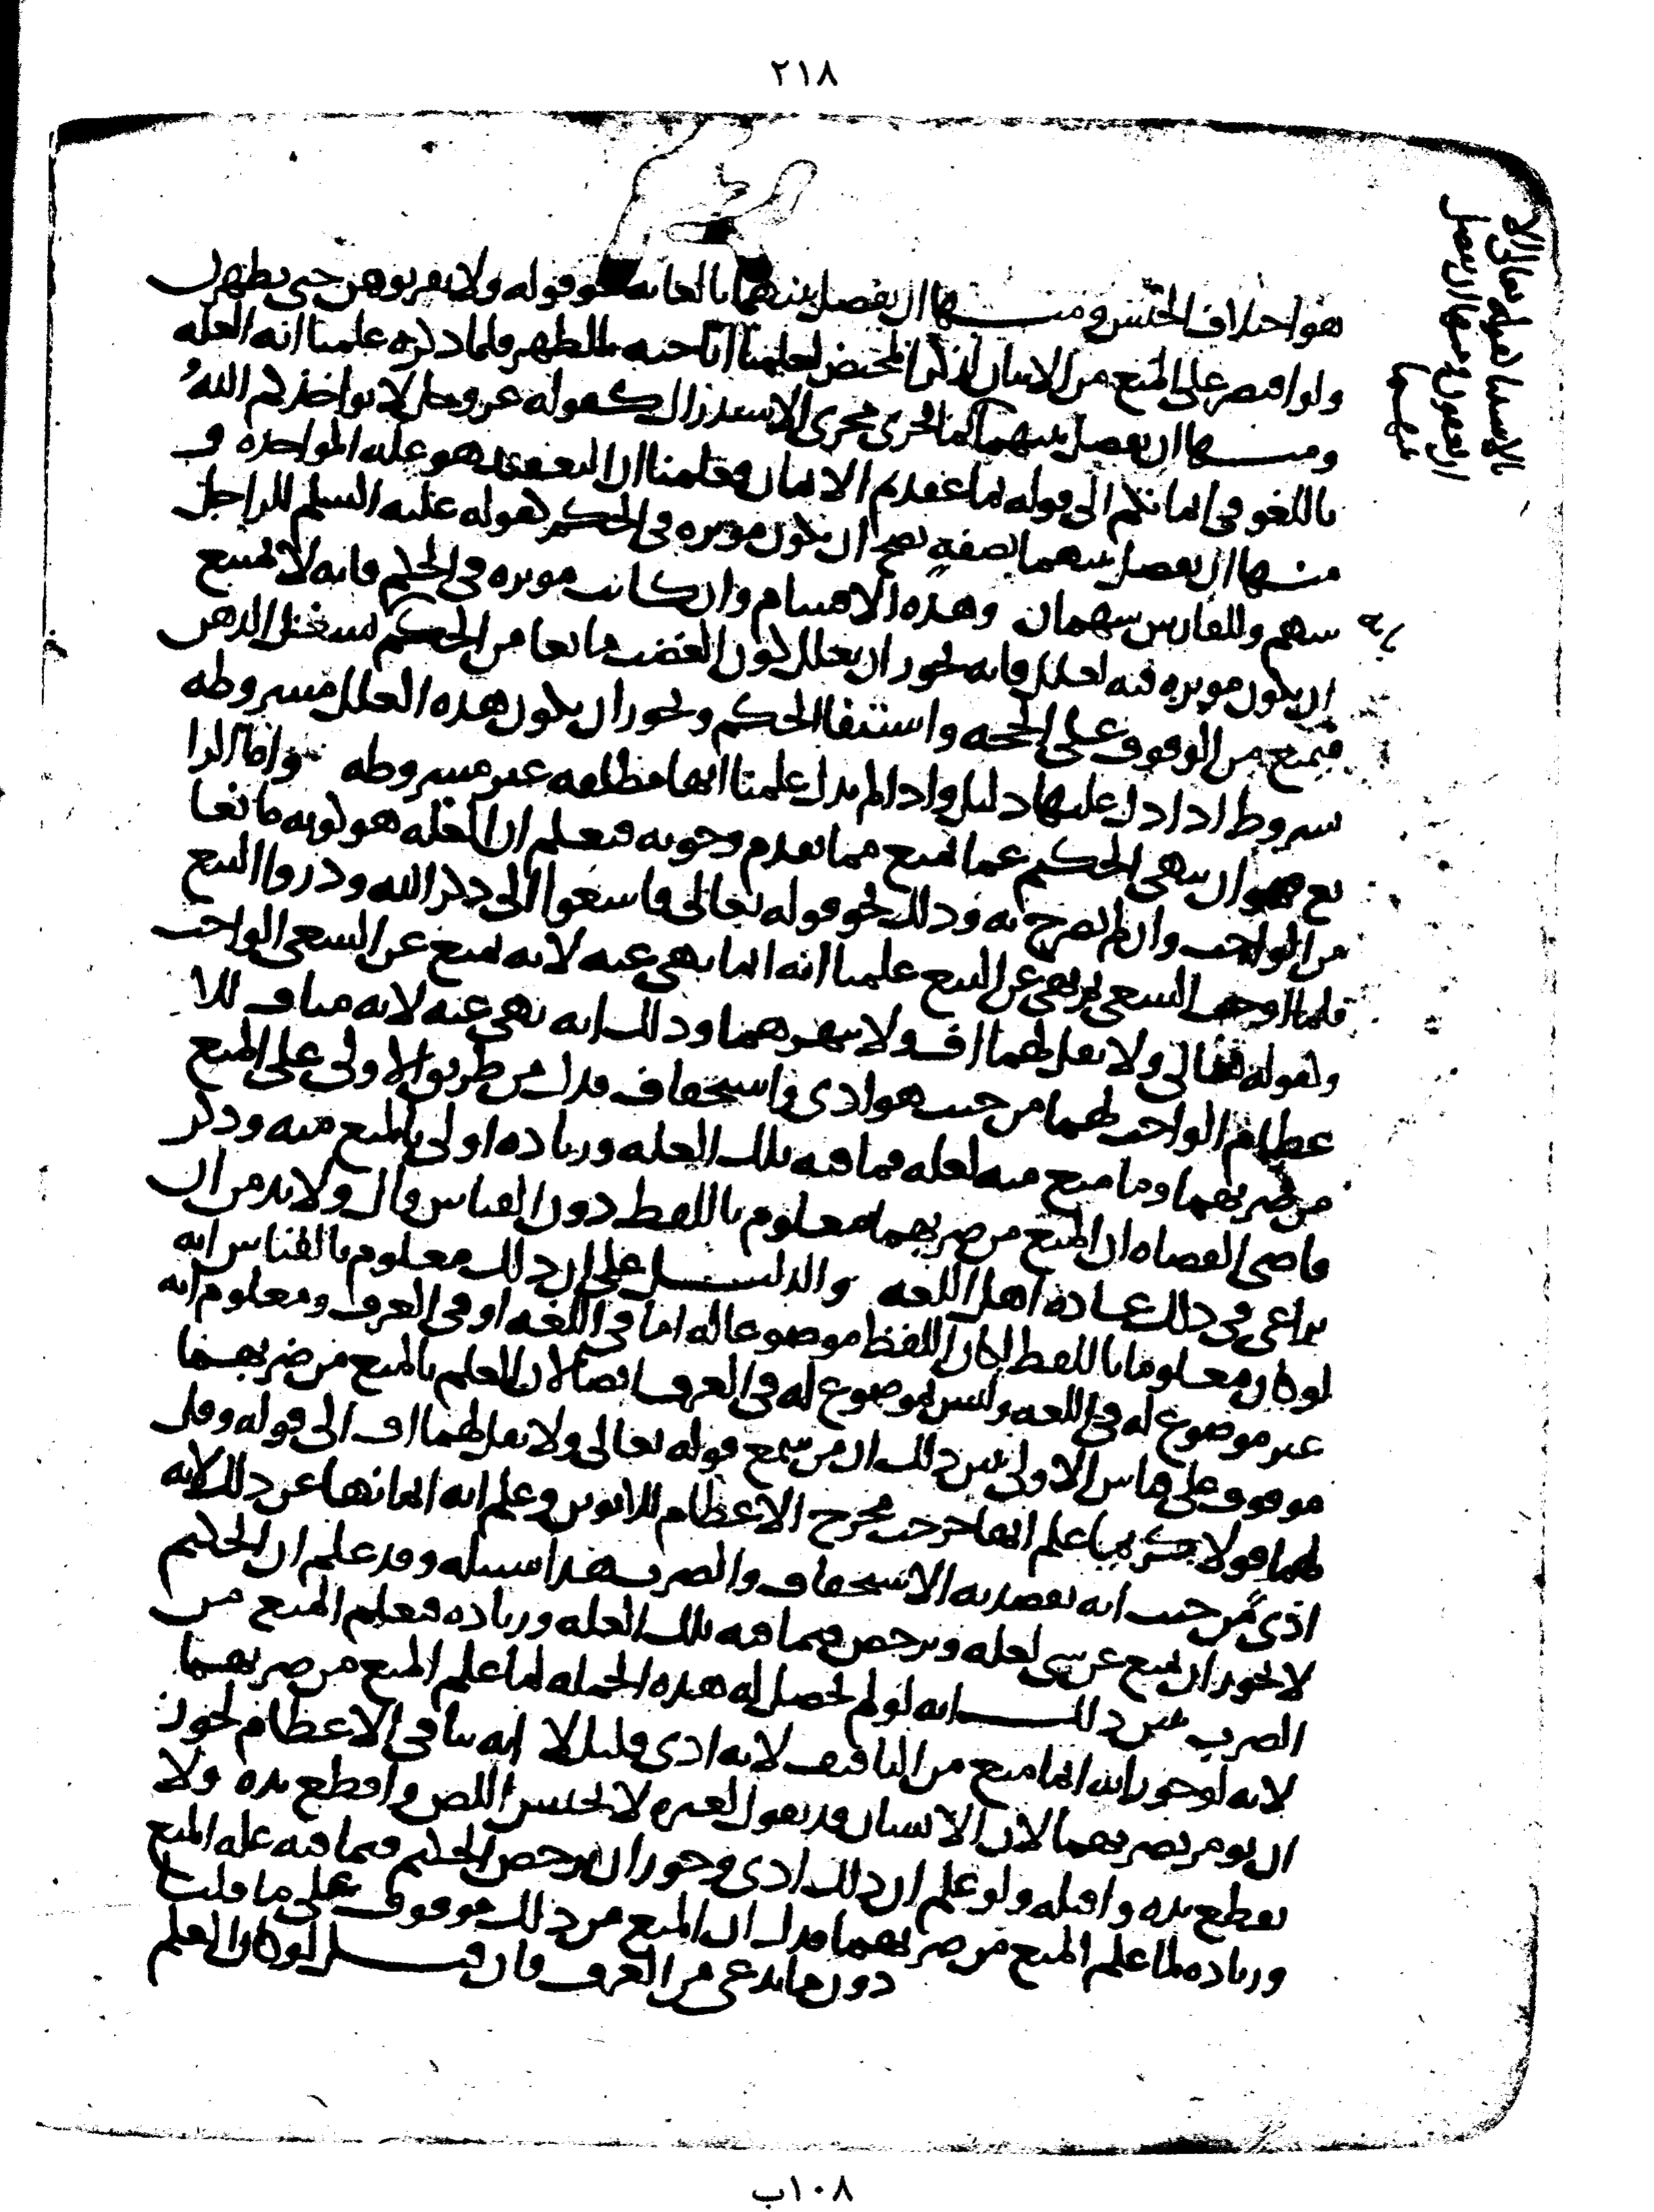 ٢١٨
هو اختلاف الجنس ومنها ان يفصل بينهما بالغايه نحو قوله ولا تقربوهن حتى يطهرن
ولو اقتصر على المنع من الاتيان الحيض لعلمنا اباحته بالطهر فلما ذكره علمنا انه العله
ومنها ان يفصل بينهما بما يجري مجرى الاستدراك كقوله عز وجل لا يواخذكم الله
باللغو في ايمانكم الى قوله بما عقدتم الايمان فعلمنا ان التعقيد هو عله المواخذه و
منها ان يفصل بينهما بصفه يصح ان يكون موثره في الحكم كقوله عليه السلم للراجل
سهم وللفارس سهمان وهذه الاقسام وان كانت موثره في الحكم فانه لا يمتنع
ان يكون موثره فيه لعلل فانه يجوز ان يعلل كون الغضب مانعا من الحكم لشغل الذهن
فيمنع من الوقوف على الحجه واستيفا الحكم ويجوز ان يكون هذه العلل مشروطه
بشروط اذا دل عليها دليل واذا لم يدل علمنا انها مطلقه غير مشروطه واما الرا
بع فهو ان ينهى الحكيم عما يمنع مما تقدم وجوبه فيعلم ان العله هو كونه مانعا
من الواجب وان لم يصرح به وذلك نحو قوله تعالى فاسعوا الى ذكر الله وذروا البيع
فلما اوجب السعي ثم نهى عن البيع علمنا انه انما نهى عنه لانه يمنع عن السعي الواجب
وكقوله تعالى ولا تقل لهما اف ولا تنهرهما وذلك انه نهى عنه لانه مناف للا
عظام الواجب لهما من حيث هو اذى واستخفاف فدل من طريق الاولى على المنع
من ضربهما وما منع منه لعله فما فيه تلك العله وزياده اولى بالمنع منه وذكر
قاضي القضاه ان المنع من ضربهما معلوم باللفظ دون القياس قال ولا بد من ان
يراعى في ذلك عاده اهل اللغه والدليل على ان ذلك معلوم بالقياس انه
لو كان معلوما باللفظ لكان اللفظ موضوعا له اما في اللغه او في العرف ومعلوم انه
غير موضوع له في اللغه وليس بموضوع له في العرف ايضا لان العلم بالمنع من ضربهما
موقوف على قياس الاولى يبين ذلك ان من سمع قوله تعالى ولا تقل لهما اف الى قوله وقل
لهما قولا كريما علم انها خرجت مخرج الاعظام للابوين وعلم انه انما نهى عن ذلك لانه
اذى من حيث انه يقصد به الاستخفاف والضرب هذا سبيله وقد علم ان الحكيم
لا يجوز ان يمنع عن شي لعله ويرخص فيما فيه تلك العله وزياده فيعلم المنع من
الضرب يبين ذلك انه لو لم يحصل له هذه الجمله لما علم المنع من ضربهما
لانه لو جوز انه انما منع من التافيف لانه اذى قليل لا انه ينافي الاعظام لجوز
ان يومر بضربهما لان الانسان قد يقول لغيره لا تحبس اللص واقطع يده ولا
تقطع يده واقتله ولو علم ان ذلك اذى وجوز ان يرخص الحكيم فيما فيه عله المنع
وزياده لما علم المنع من ضربهما فدل ان المنع من ذلك موقوف على ما قلت
دون ما يدعى من العرف فان قيل لو كان العلم
١٠٨ب